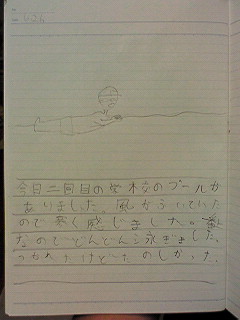 今日二回目の学校のプールが
ありました。風がふいていた
ので寒く感じました。
なのでどんどん泳ぎました。
つかれたけどたのしかった。